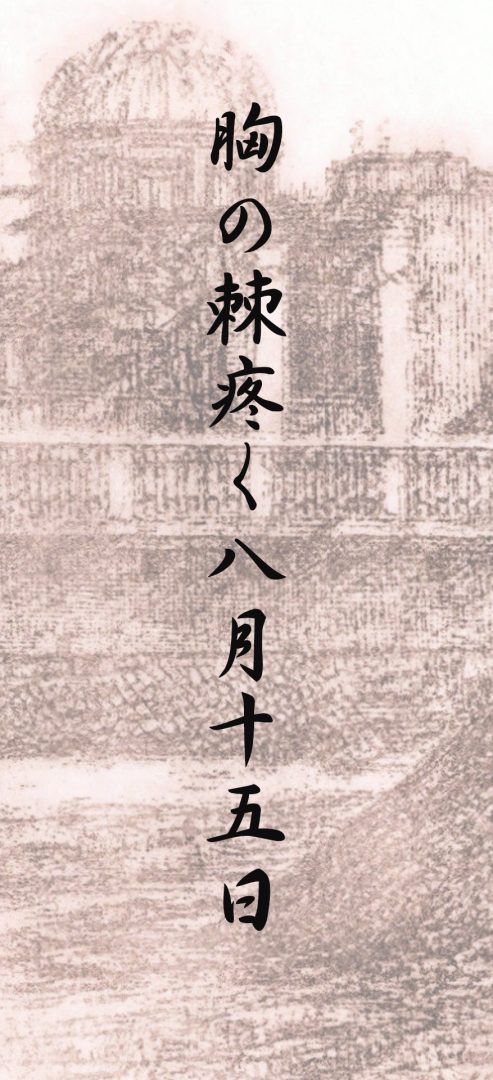 胸の棘疼く八月十五日